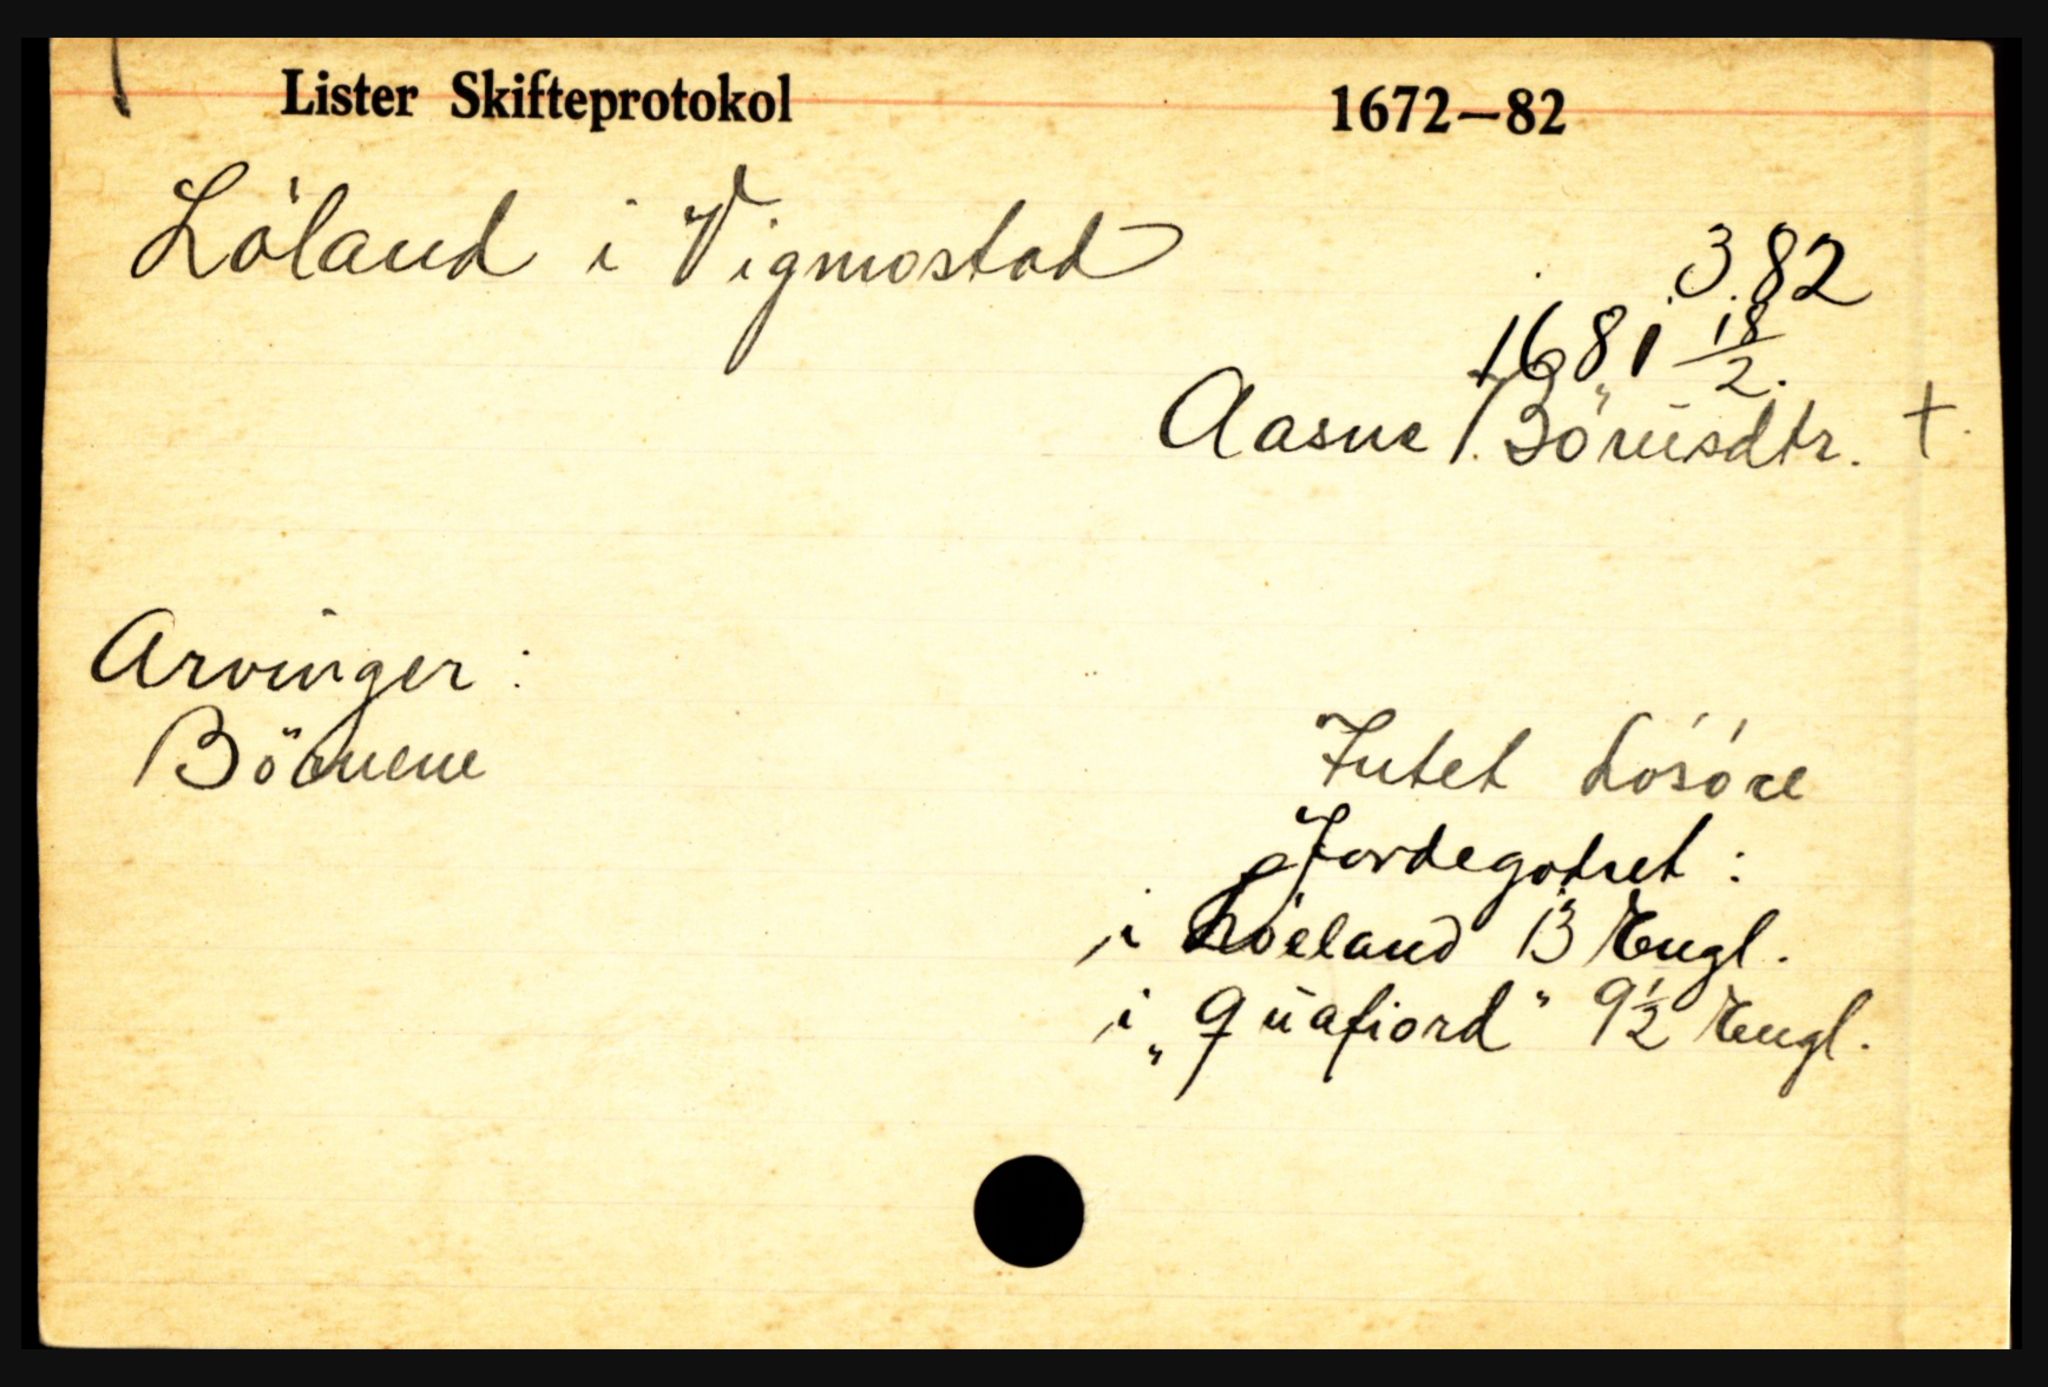 Lister Skifteprotokol 1672—82
Löland i Vigmostad
382
1681 18/2.
Aasne Börüsdtr. +
Arvinger:
Börnene
Intet Lösöre
Jordegodset:
i Löeland 13 Engl.
i "Qüafiord" 9½ Engl.